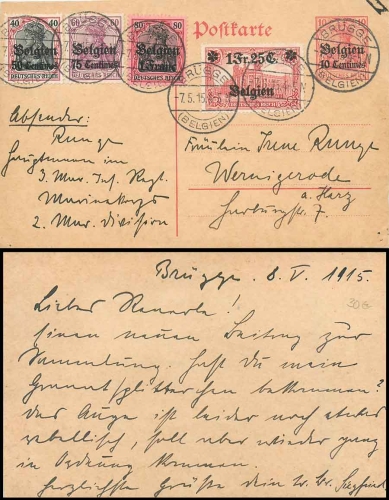 40 40
60 60
80 80
Belgien
50 Centimes
Belgien
75 Centimes
Belgien
1 Franc
DEUTSCHES REICH
DEUTSCHES REICH
DEUTSCHES REICH
Postkarte
1Fr.25C.
Belgien
10 10
Belgien
10 Centimes
BRÜGGE
(BELGIEN)
BRÜGGE
7.5.15
(BELGIEN)
Absender:
Runge
Hauptmann im
3. Mar. Inf. Regt.
Marinekorps
2. Mar. Division
Fräulein Irene Runge
Wernigerode
a. Harz
7.
Brügge. 8. V. 1915.
Lieber
einen neuen Beitrag zur
Sammlung. Hast du mein
Granatsplitterchen bekommen?
Das Auge ist leider noch etwas
rebellisch, soll aber wieder ganz
in Ordnung kommen.
Herzlichste Grüße dein Siegfried